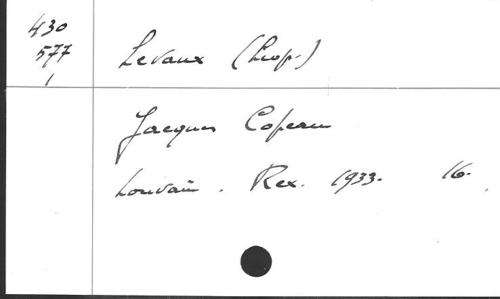 430
577
1
Levaux (Léop.)
Jacques Copeau
Louvain. Rex. 1933. 16.